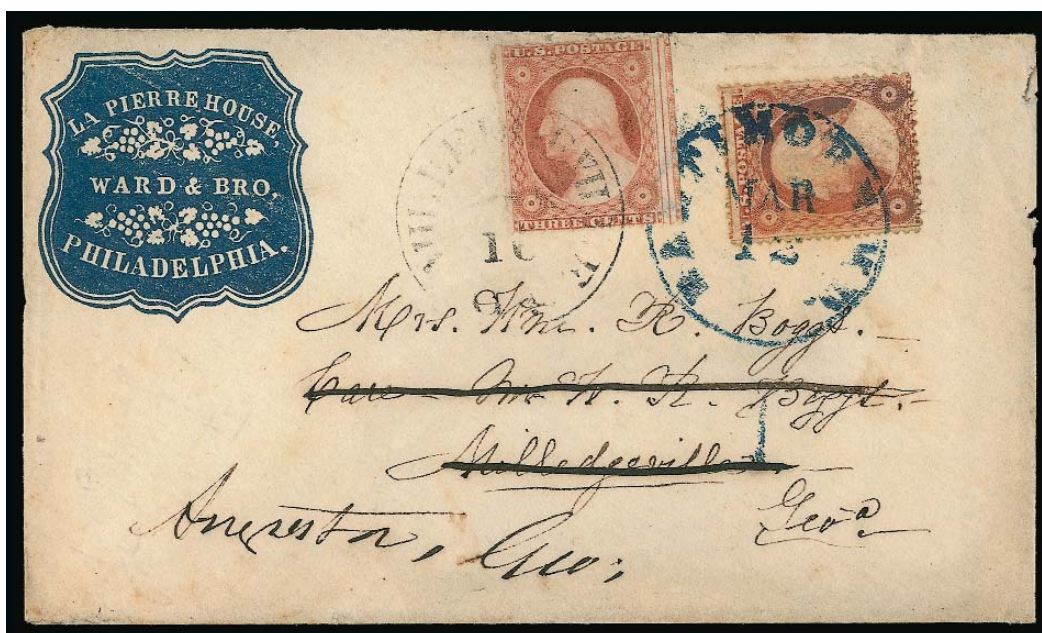 LA PIERRE HOUSE,
WARD & BRO.
PHILADELPHIA.
U.S. POSTAGE
THREE CENTS
MAR
12
Mrs. Wm. R. Boggs.
Care Mr. W. R. Boggs.
Milledgeville
Geoa
Augusta, Geo;